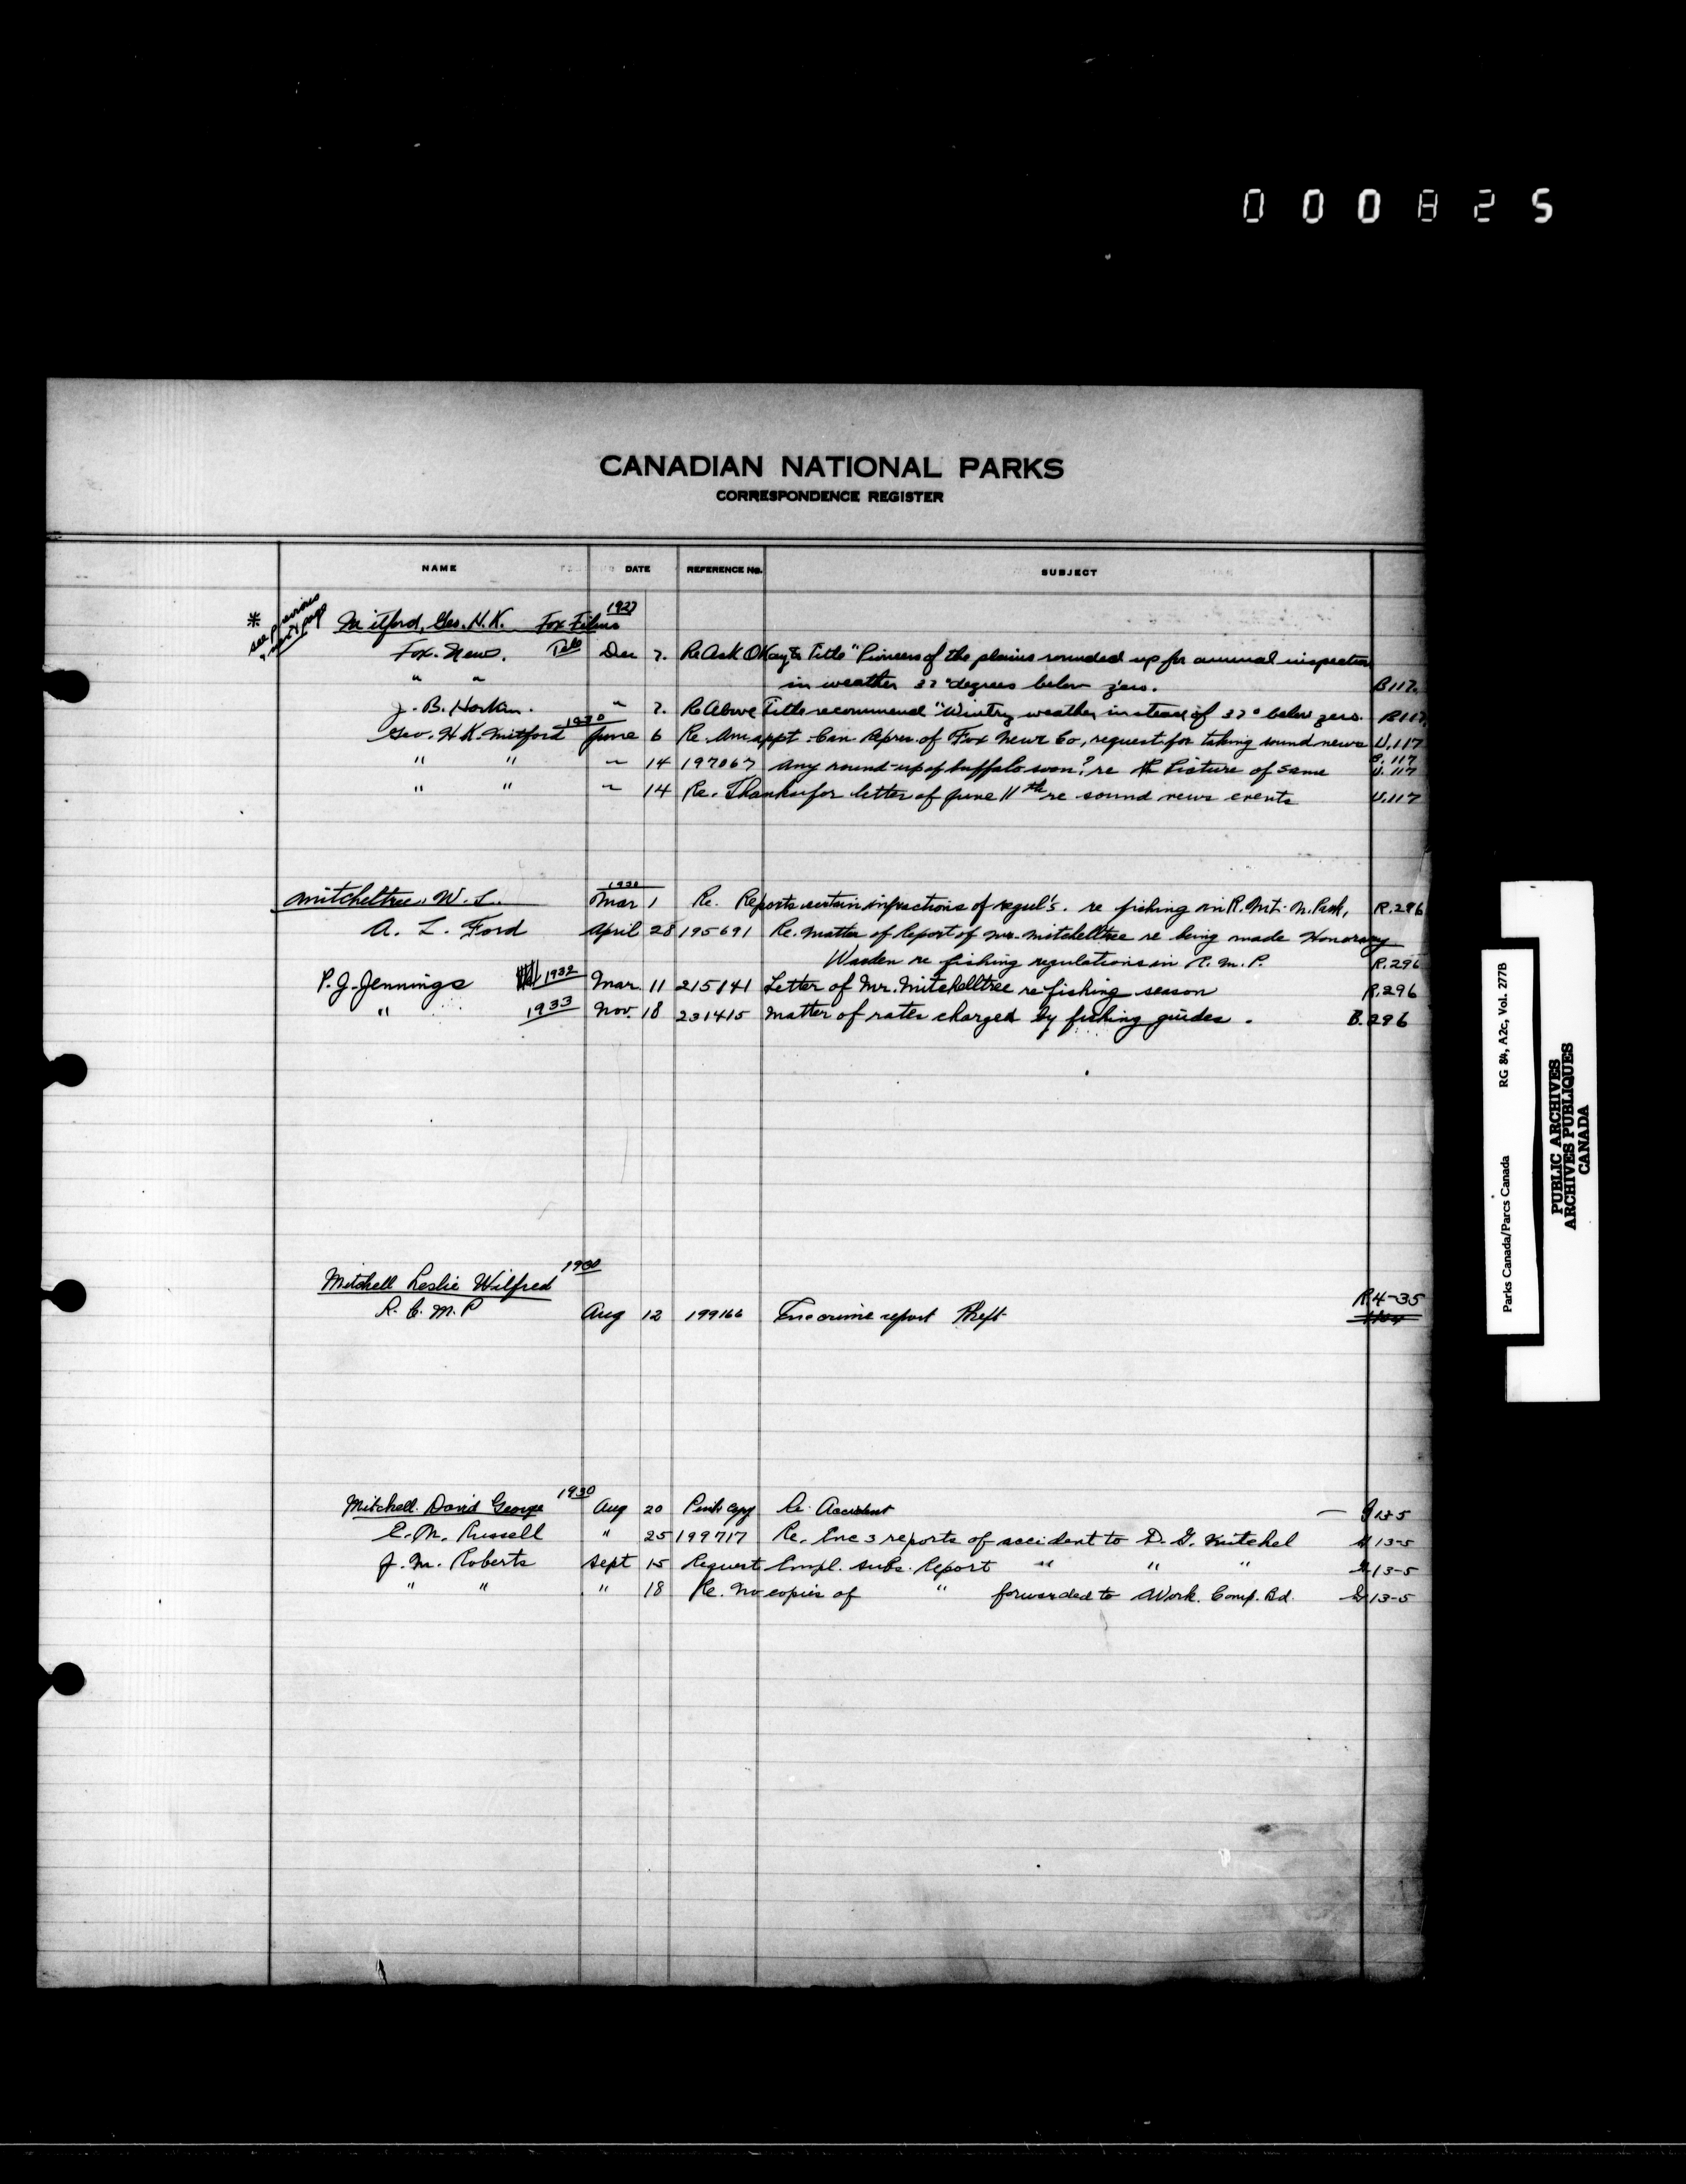 000825
CANADIAN NATIONAL PARKS
CORRESPONDENCE REGISTER
NAME DATE REFERENCE No. SUBJECT
* see previous & next page
1927
Mitford, Geo. H.K. Fox Films
Fox. News. Tele Dec 7. Re Ask Okay to Title "Pioneers of the plains rounded up for annual inspection
" " in weather 32° degrees below zero. B117.
J. B. Harkin. " 7. Re Above Title recommend "Wintry weather instead of 32° below zero. B117.
1930
Geo. H.K. Mitford June 6 Re. Am appt. Can Repres. of Fox News Co, request for taking sound news U.117
" " " 14 197067 Any round-up of buffalo soon? re Picture of same B.117 U.117
" " " 14 Re. Thanks for letter of June 11th re sound news events U.117
1930
Mitcheltree, W. L. Mar 1 Re. Reports certain infractions of regul's. re fishing in R. Mt. N. Park, R.296
A. L. Ford April 28 195691 Re. Matter of Report of Mr. Mitchelltree re being made Honorary
Warden re fishing regulations in R. M. P. R.296
P. J. Jennings 1932 Mar. 11 215141 Letter of Mr. Mitchelltree re fishing season R.296
" 1933 Nov. 18 231415 Matter of rates charged by fishing guides. B.296
1930
Mitchell Leslie Wilfred
R. C. M. P Aug 12 199166 Enc crime report Theft R4-35
1930
Mitchell. David George Aug 20 Pink Copy Re. Accident — G 13-5
E. M. Russell " 25 199717 Re. Enc 3 reports of accident to D. G. Mitchel G 13-5
J. M. Roberts Sept 15 Request Empl. Subs. Report " " " G 13-5
" " " 18 Re. No copies of " forwarded to Work. Comp. Bd. G 13-5
Parks Canada/Parcs Canada RG 84, A2c, Vol. 277B
PUBLIC ARCHIVES
ARCHIVES PUBLIQUES
CANADA